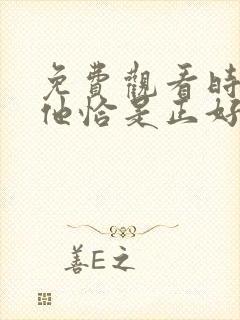 免費觀看時
他恰是正好
善E之